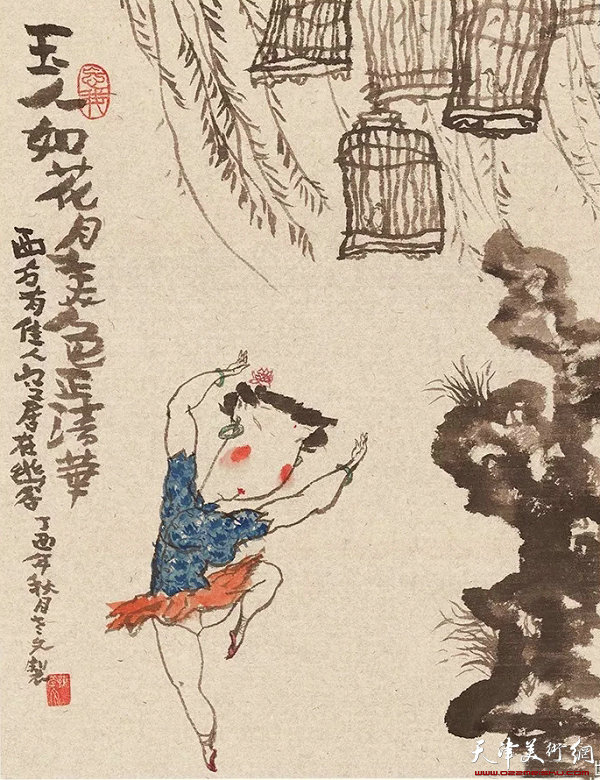 玉人如花月春色正清華
西方有佳人居在幽谷 丁酉年秋月老文製
天津美術網
www.022meishu.com